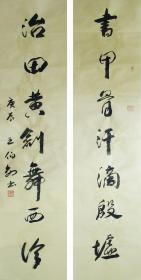 書甲骨汗滴殷墟
治田黄劍舞西泠
庚辰
王伯劍書